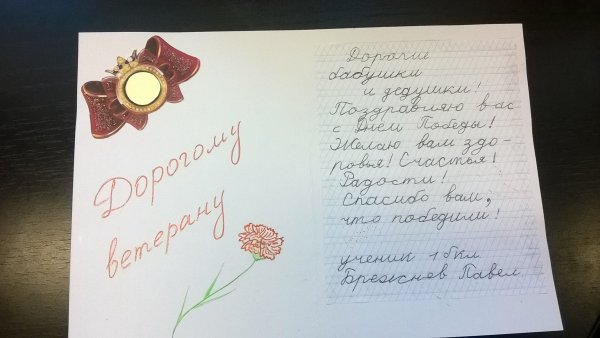 Дорогому
ветерану
Дорогие
бабушки
и дедушки!
Поздравляю вас
с Днём Победы!
Желаю вам здо-
ровья! Счастья!
Радости!
Спасибо вам,
что победили!
ученик 1бкл
Брежнев Павел